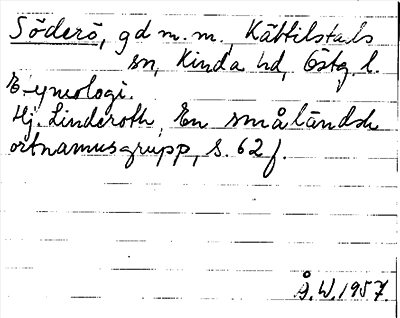 Söderö, gd m.m., Kättilstads
sn, Kinda hd, Östg. l.
Etymologi.
Hj. Linderoth, En småländsk
ortnamnsgrupp, s. 62 f.
Å.W. 1957.